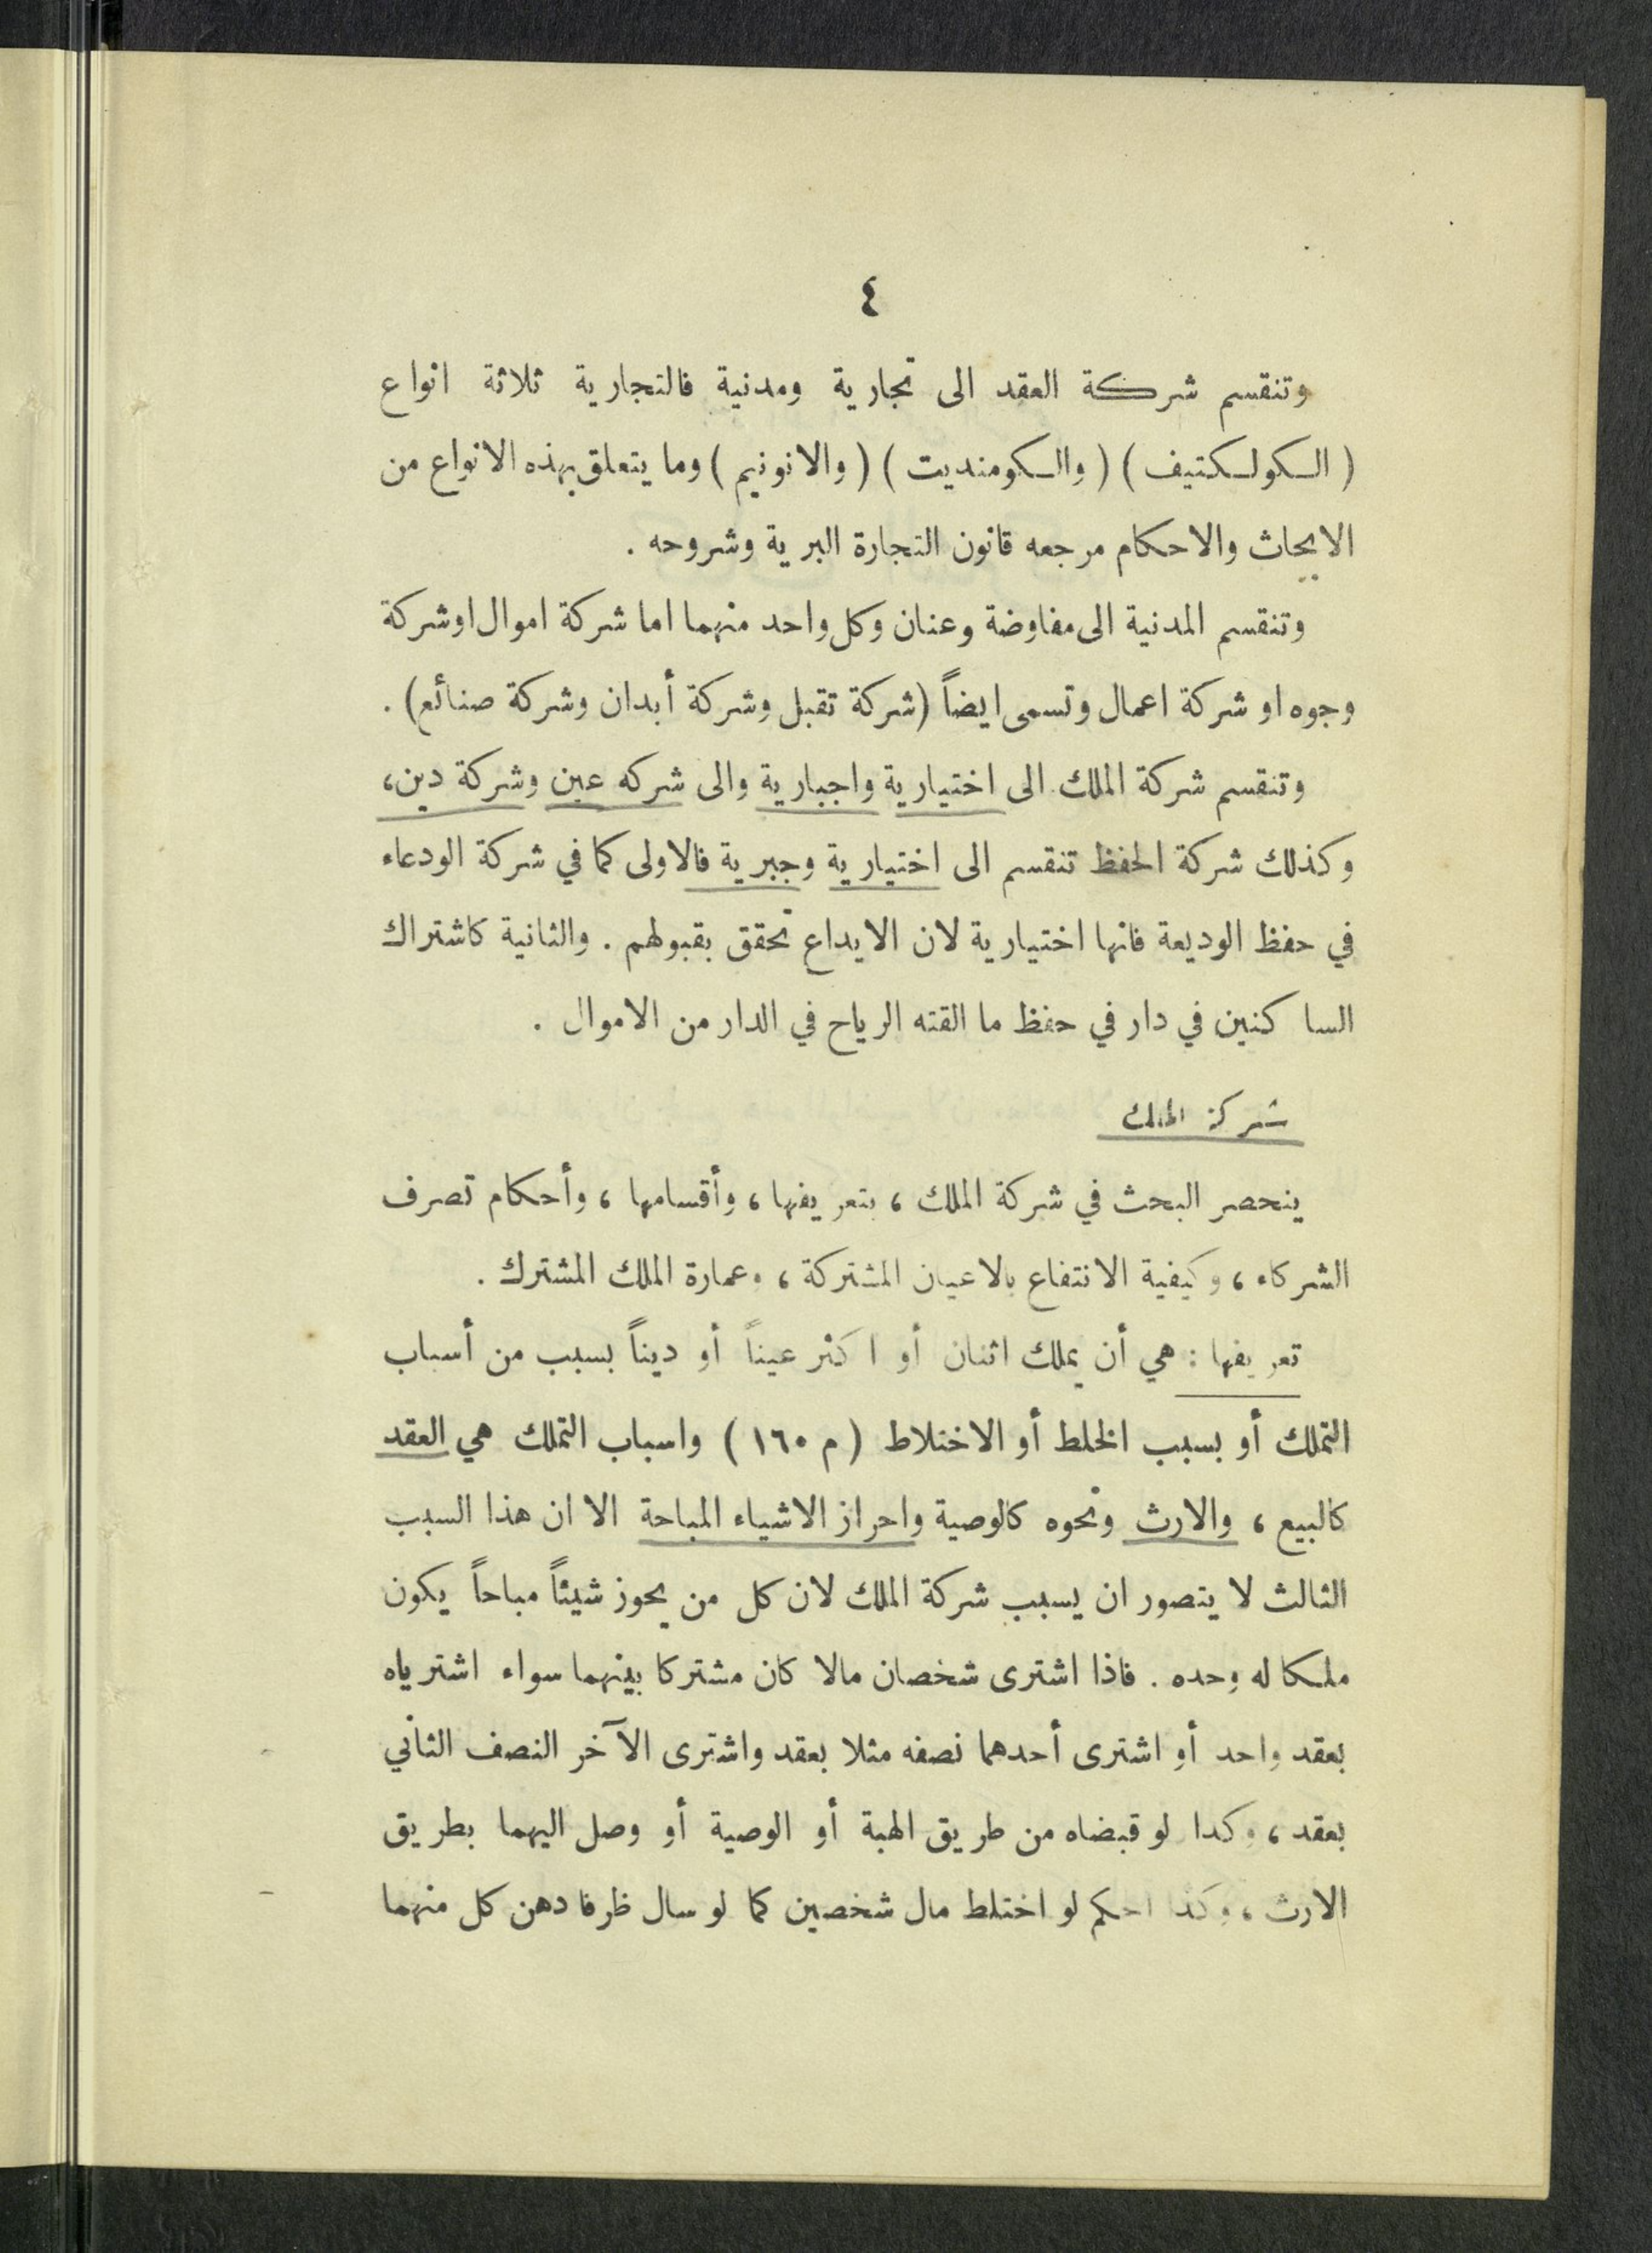 ٤
وتنقسم شركة العقد الى تجارية ومدنية فالتجارية ثلاثة انواع
( الكولكتيف ) ( والكومنديت ) ( والانونيم ) وما يتعلق بهذه الانواع من
الابحاث والاحكام مرجعه قانون التجارة البرية وشروحه .
وتنقسم المدنية الى مفاوضة وعنان وكل واحد منهما اما شركة اموال او شركة
وجوه او شركة اعمال وتسمى ايضاً (شركة تقبل وشركة أبدان وشركة صنائع) .
وتنقسم شركة الملك الى اختيارية واجبارية والى شركه عين وشركة دين،
وكذلك شركة الحفظ تنقسم الى اختيارية وجبرية فالاولى كما في شركة الودعاء
في حفظ الوديعة فانها اختيارية لان الايداع تحقق بقبولهم . والثانية كاشتراك
الساكنين في دار في حفظ ما القته الرياح في الدار من الاموال .
شركة الملك
ينحصر البحث في شركة الملك ، بتعريفها ، وأقسامها ، وأحكام تصرف
الشركاء ، وكيفية الانتفاع بالاعيان المشتركة ، وعمارة الملك المشترك .
تعريفها : هي أن يملك اثنان أو اكثر عيناً أو ديناً بسبب من أسباب
التملك أو بسبب الخلط أو الاختلاط ( م ١٦٠ ) واسباب التملك هي العقد
كالبيع ، والارث ونحوه كالوصية واحراز الاشياء المباحة الا ان هذا السبب
الثالث لا يتصور ان يسبب شركة الملك لان كل من يحوز شيئاً مباحاً يكون
ملكا له وحده . فاذا اشترى شخصان مالا كان مشتركا بينهما سواء اشترياه
بعقد واحد أو اشترى أحدهما نصفه مثلا بعقد واشترى الآخر النصف الثاني
بعقد ، وكدا لو قبضاه من طريق الهبة أو الوصية أو وصل اليهما بطريق
الارث ، وكذا احكم لو اختلط مال شخصين كما لو سال ظرفا دهن كل منهما